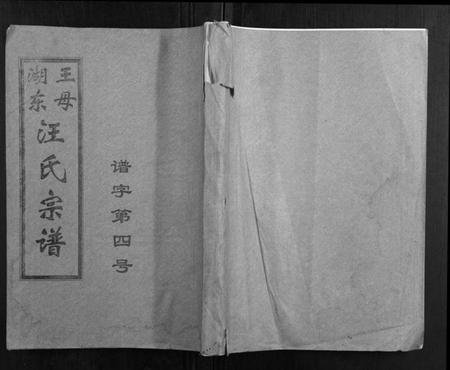 王母
湖东
汪氏宗谱
谱字第四号